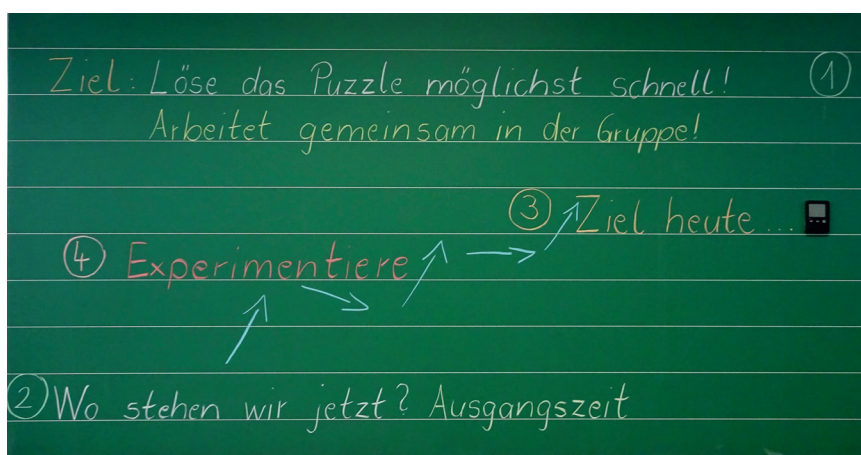 Ziel: Löse das Puzzle möglichst schnell! ①
Arbeitet gemeinsam in der Gruppe!
③ Ziel heute...
④ Experimentiere
② Wo stehen wir jetzt? Ausgangszeit